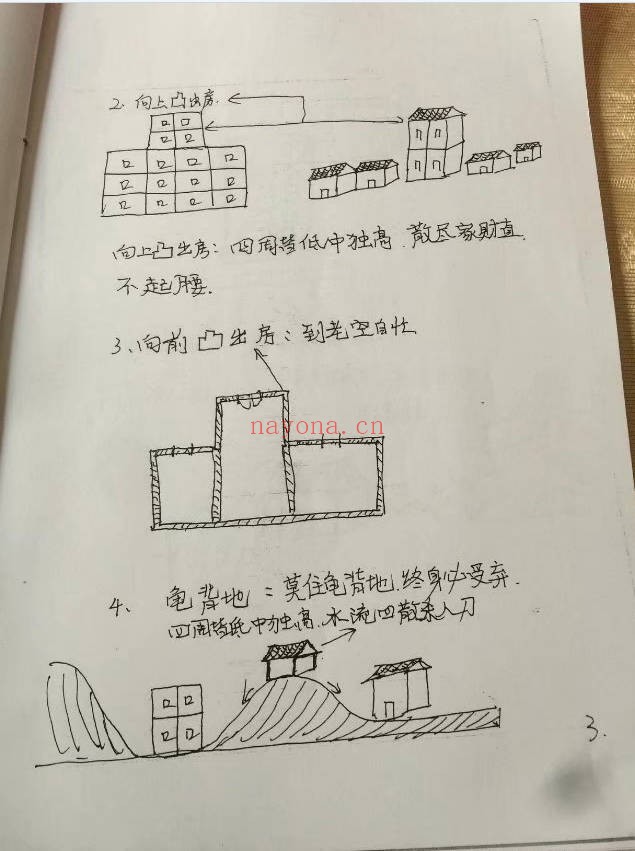 2. 向上凸出房.
向上凸出房：四周皆低中独高.散尽家财直
不起腰.
3、向前凸出房：到老空自忙
nayona.cn
4、龟背地：莫住龟背地.终身必受弃.
四周皆低中独高.水流四散杀人刀
3.